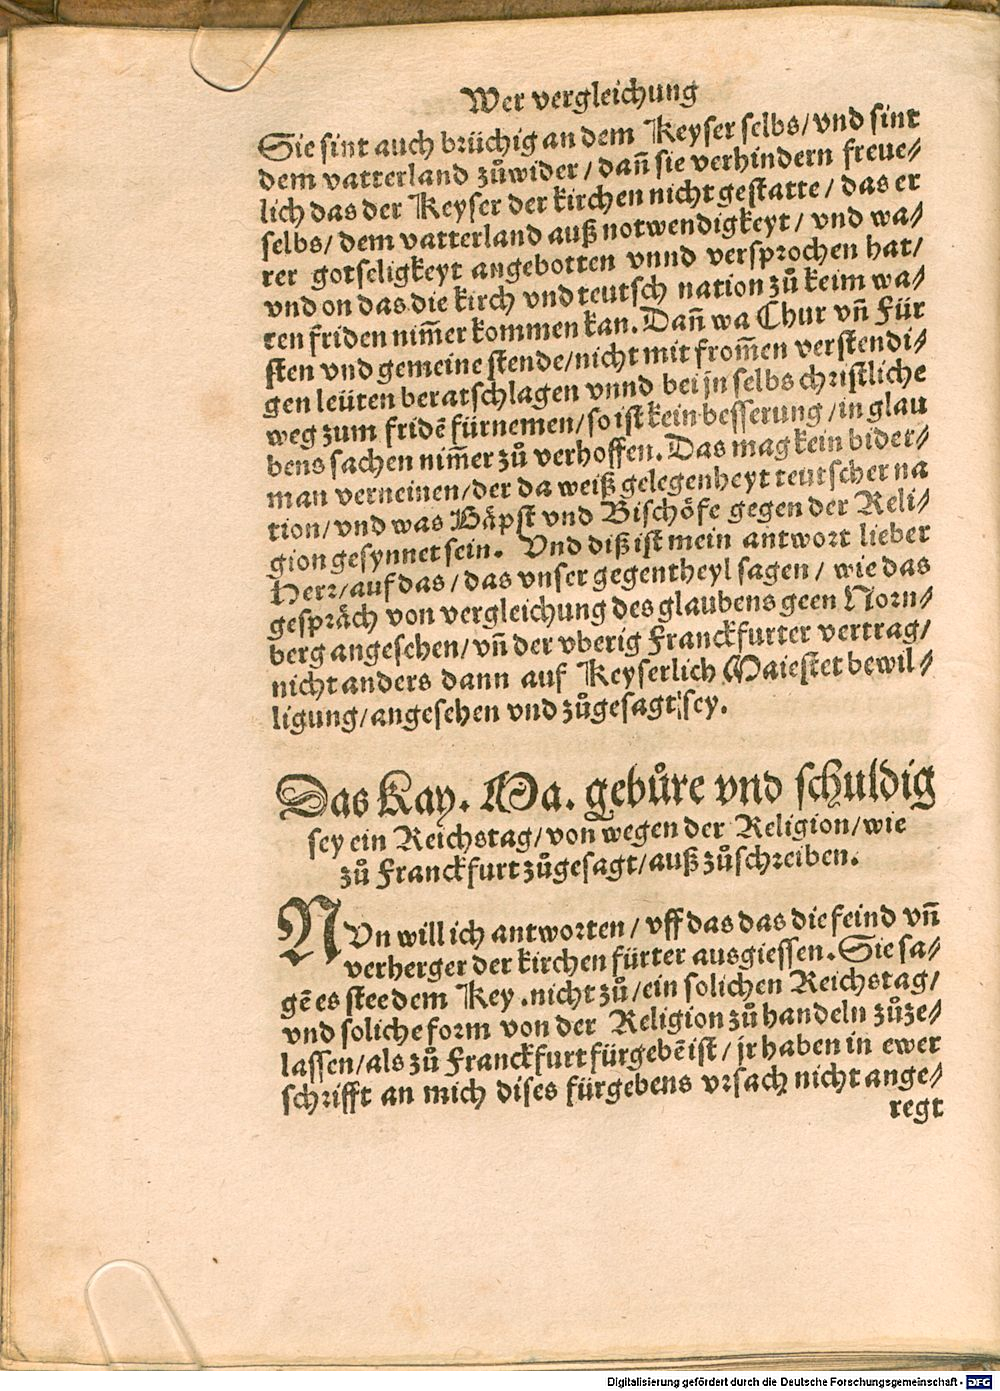 Wer vergleichung
Sie sint auch brüchig an dem Keyser selbs/ vnd sint
dem vatterland zůwider / dañ sie verhindern freue⸗
lich das der Keyser der kirchen nicht gestatte / das er
selbs/ dem vatterland auß notwendigkeyt / vnd wa⸗
rer gotseligkeyt angebotten vnnd versprochen hat/
vnd on das die kirch vnd teutsch nation zů keim wa⸗
ren friden nim̃er kommen kan. Dañ wa Chur vñ Für
sten vnd gemeine stende/nicht mit from̃en verstendi⸗
gen leüten beratschlagen vnnd bei jn selbs christliche
weg zum fridẽ fürnemen/ so ist kein besserung / in glau
bens sachen nim̃er zů verhoffen. Das mag kein bider⸗
man verneinen/der da weiß gelegenheyt teutscher na
tion/ vnd was Bäpst vnd Bischöfe gegen der Reli⸗
gion gesynnet sein. Vnd diß ist mein antwort lieber
Herr/ auf das / das vnser gegentheyl sagen / wie das
gespräch von vergleichung des glaubens geen Norn⸗
berg angesehen/ vñ der vberig Franckfurter vertrag/
nicht anders dann auf Keyserlich Maiestet bewil⸗
ligung/ angesehen vnd zůgesagt sey.
Das Kay. Ma. gebůre vnd schuldig
sey ein Reichstag/ von wegen der Religion/ wie
zů Franckfurt zůgesagt/ auß zůschreiben.
NVn will ich antworten / vff das das die feind vñ
verherger der kirchen fürter ausgiessen. Sie sa⸗
gẽ es stee dem Key . nicht zů/ ein solichen Reichstag/
vnd soliche form von der Religion zů handeln zůze⸗
lassen/ als zů Franckfurt fürgebẽ ist / jr haben in ewer
schrifft an mich dises fürgebens vrsach nicht ange⸗
regt
Digitalisierung gefördert durch die Deutsche Forschungsgemeinschaft - DFG